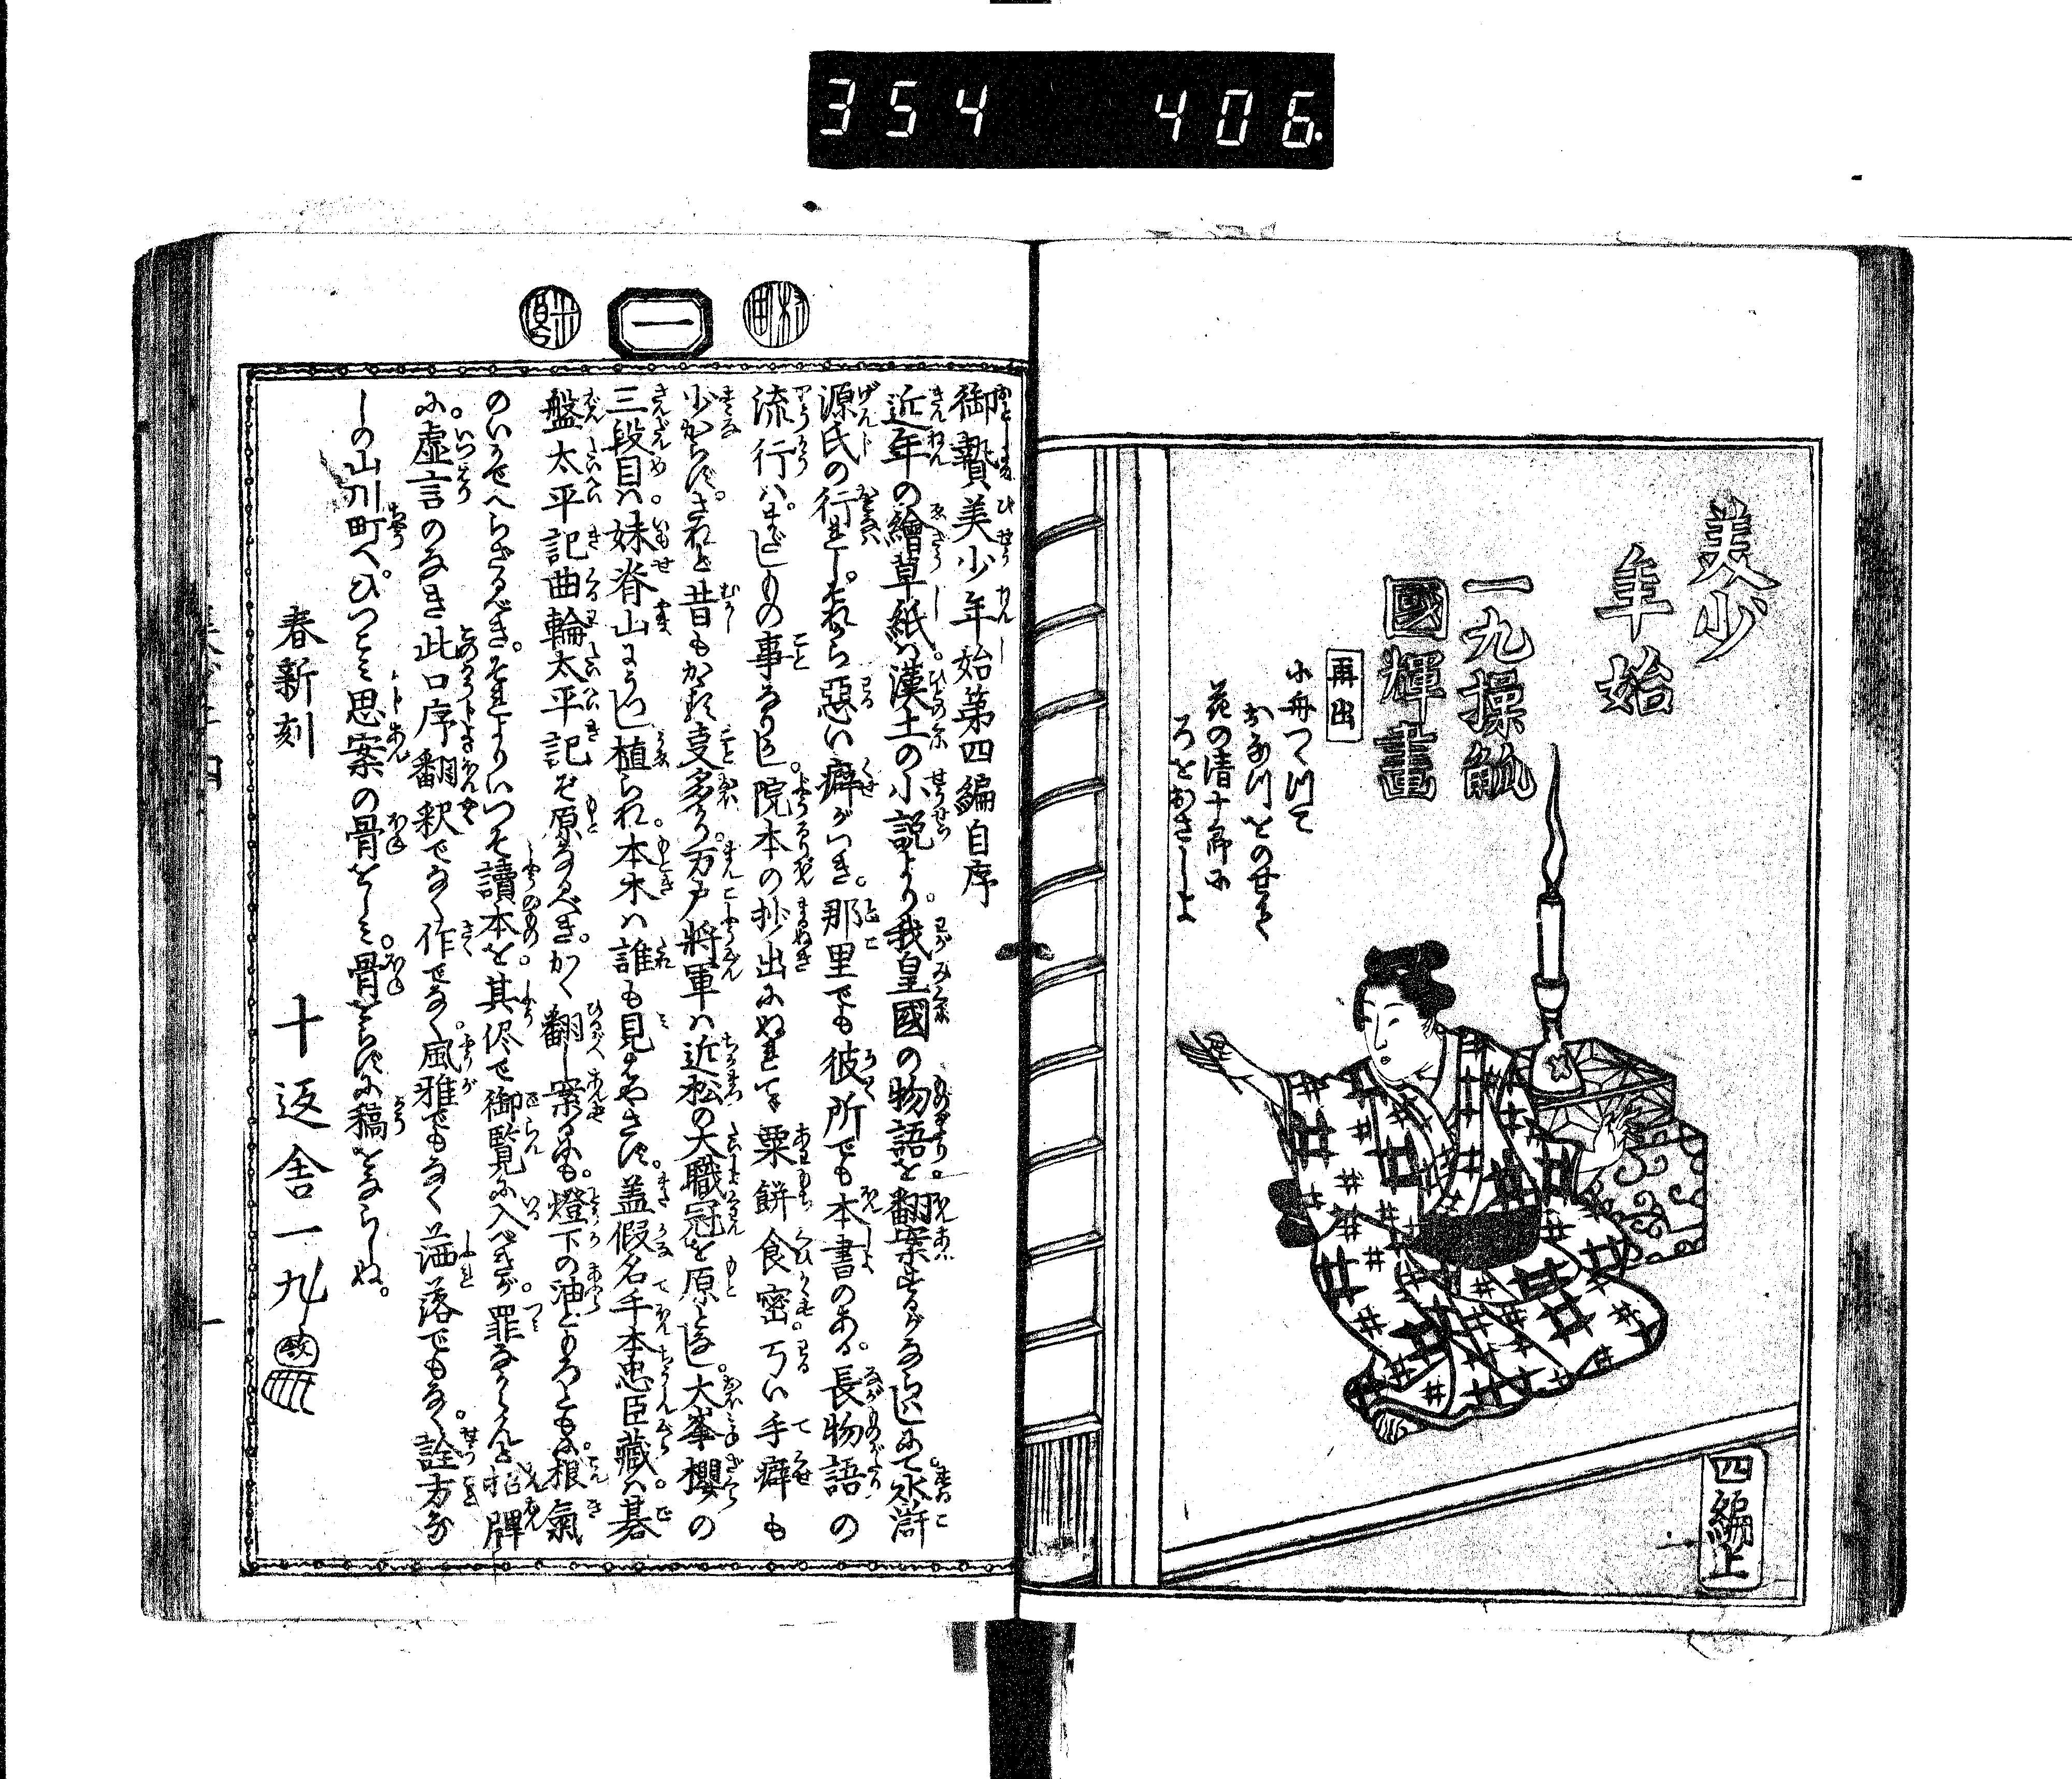 354 406.
美少
年始
一九操觚
國輝畫
再出
小舟つくりて
おなつをのせて
花の清十郎に
ろをおさしよ
四編上
一
御贄美少年始第四編自序
近年の繪草紙ハ漢土の小説より。我皇國の物語を翻案するがならひにて水滸
源氏の行れしそれから惡い癖がいき。那里でも彼所でも本書のある。長物語の
流行ハ。まだしもの事なりし。院本の抄出にぬれ手で粟餅食密丂い手癖も
少からず。されど昔もかゝる支多かり。万戸將軍は近松の大職冠を原とし。大峯櫻の
三段目ハ。妹脊山にうつし植られ。本木ハ誰も見はやさず。盖假名手本忠臣藏ハ碁
盤太平記曲輪太平記ぞ原なるべき。かく翻し案るにも。燈下の油ともろともに。根氣
のいかでへらざるべき。それよりいつそ讀本を。其侭で御覧に入べきが。罪なからんと招牌
に。虚言のなき此口序翻釈でなく作でなく。風雅でもなく洒落でもなく。詮方な
しの山川町へ。ひつこミ思案の骨をしミ。骨をらずに稿をならしぬ。
春新刻
十返舎一九